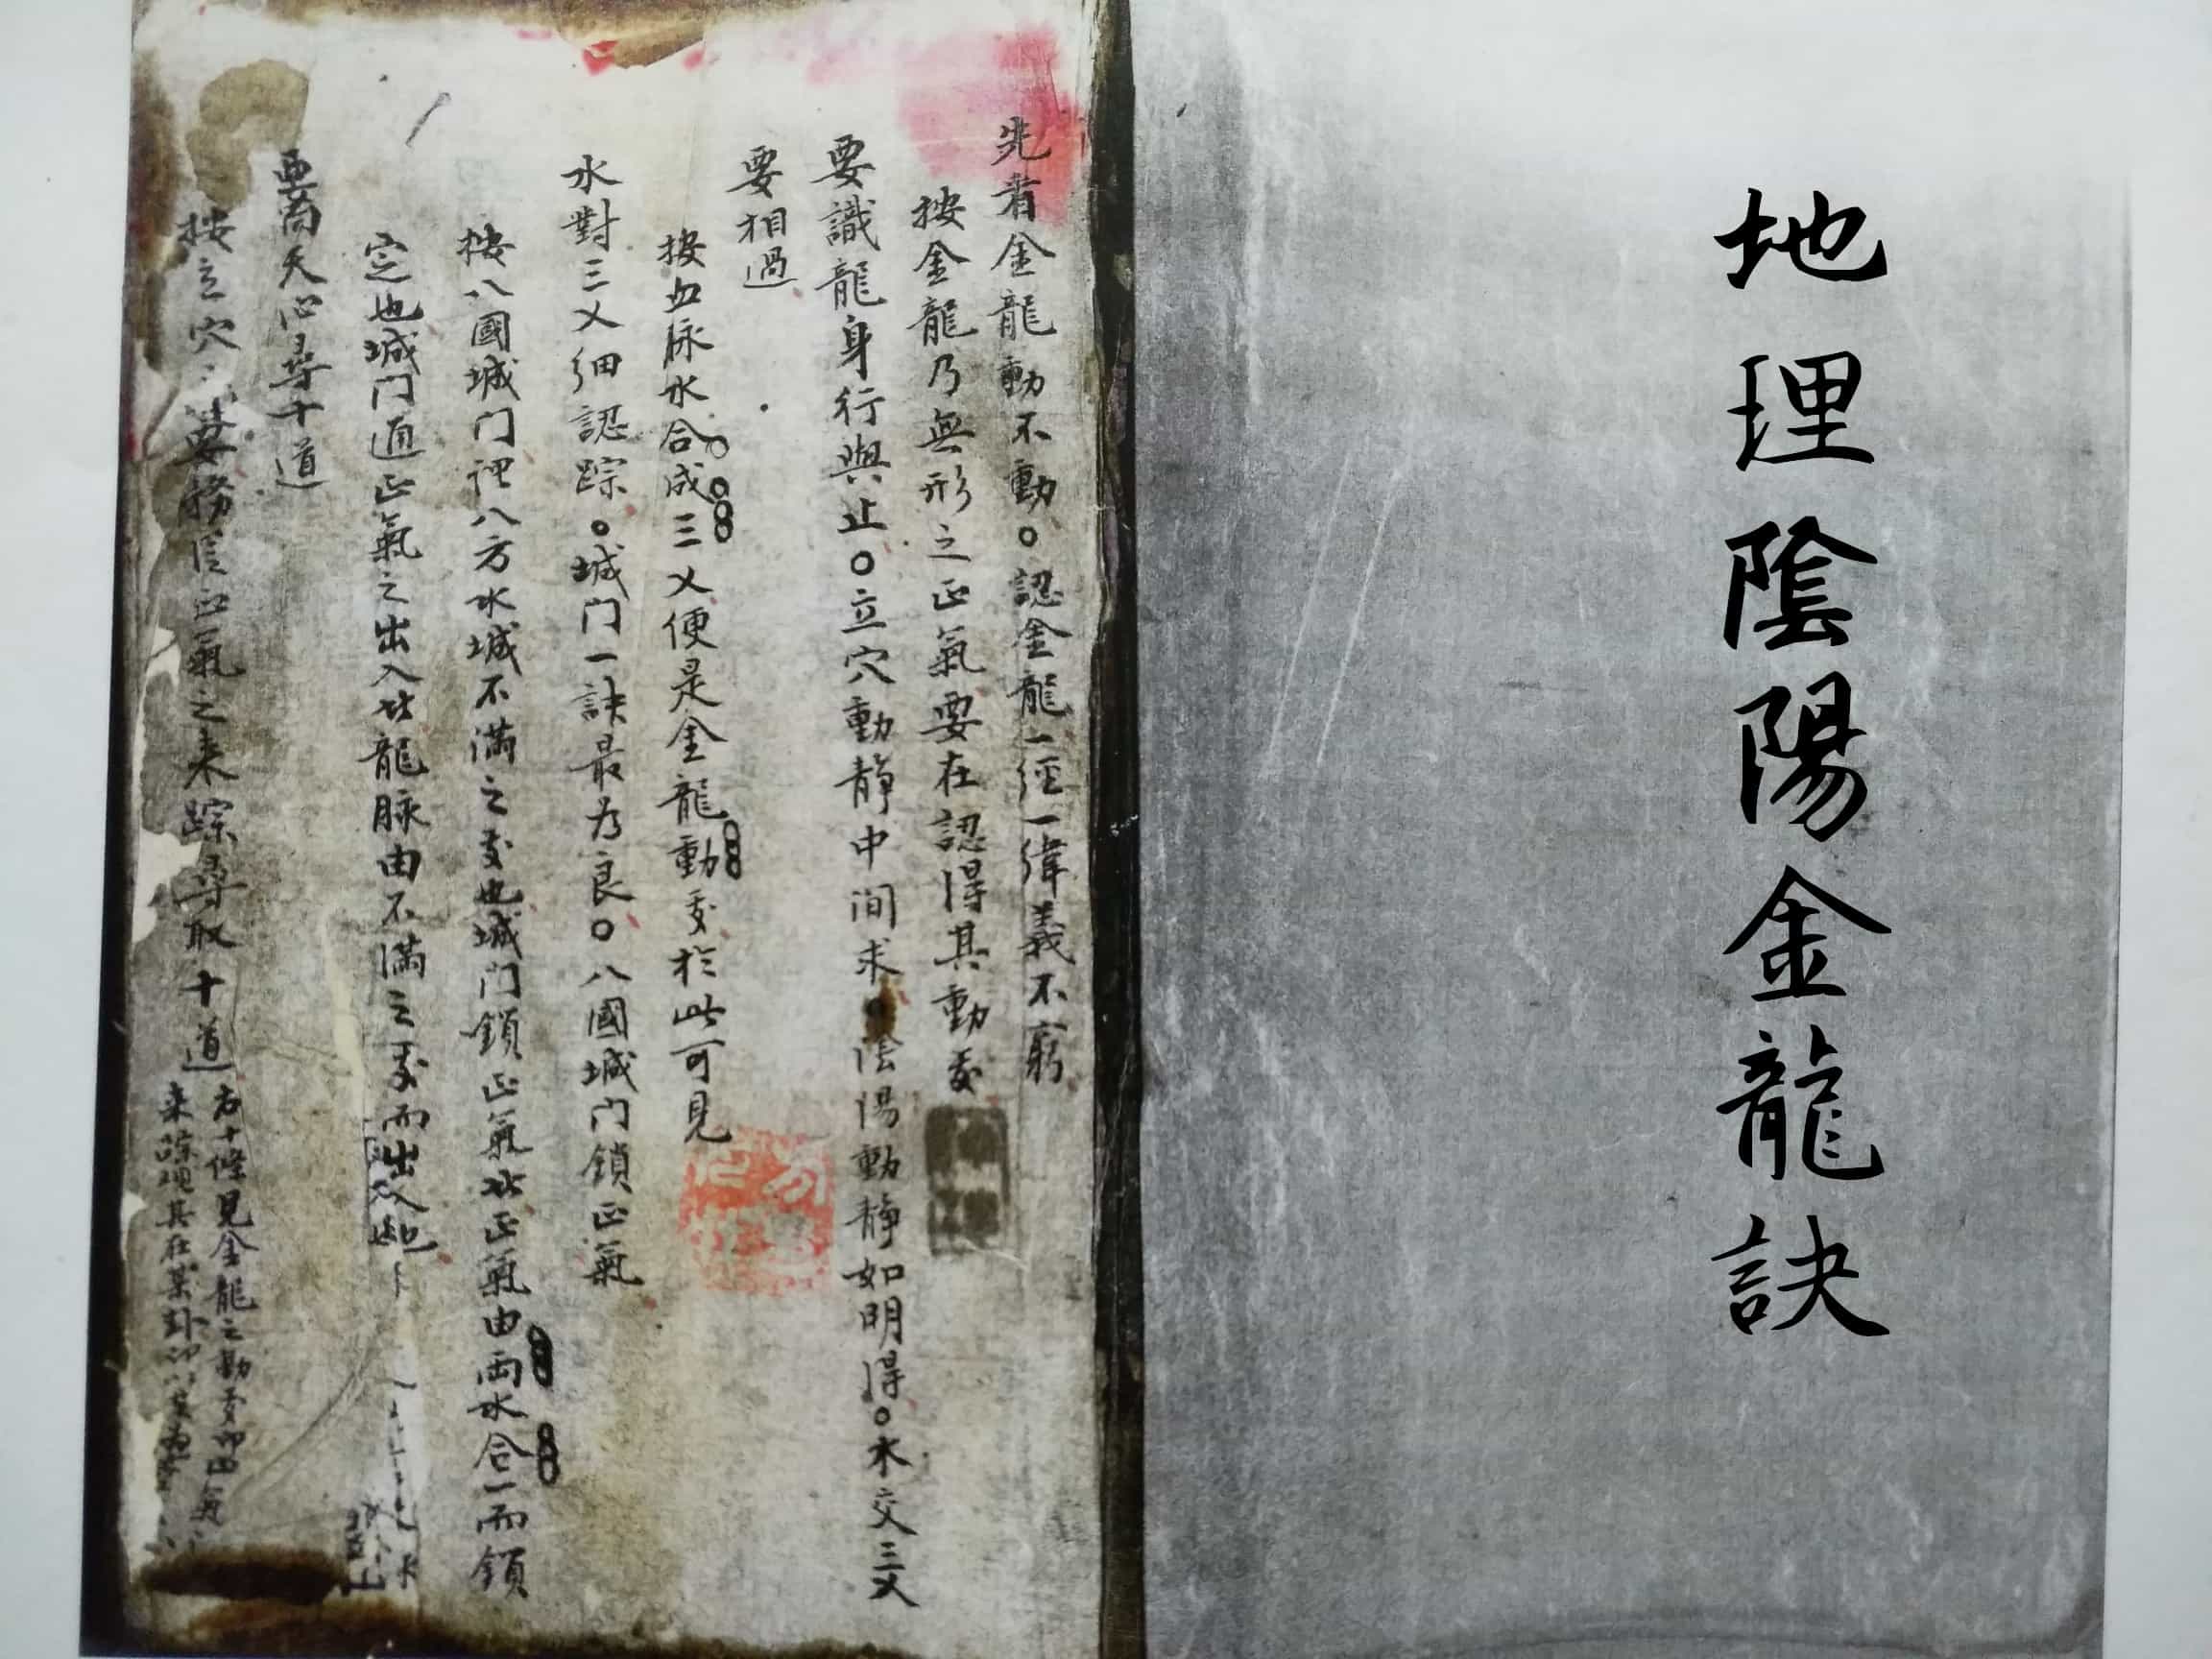 地理陰陽金龍訣
先看金龍動不動。認金龍一經一緯義不窮
按金龍乃無形之正氣要在認得其動处
要識龍身行與止。立穴動静中间求。陰陽動静如明得。水交三乂
要相過
按血脉水合成三乂便是金龍動处於此可見
水對三乂细認踪。城门一訣最为良。八國城门鎖正氣
按八國城门裡八方水城不满之处也城门鎖正氣此正氣由両水合一而鎖
定也城门通正氣之出入此龍脉由不满之处而出入也
要向天心尋十道
按立穴之要務 氣之来踪尋取十道
右十條見金龍之動处
来踪現其在某卦